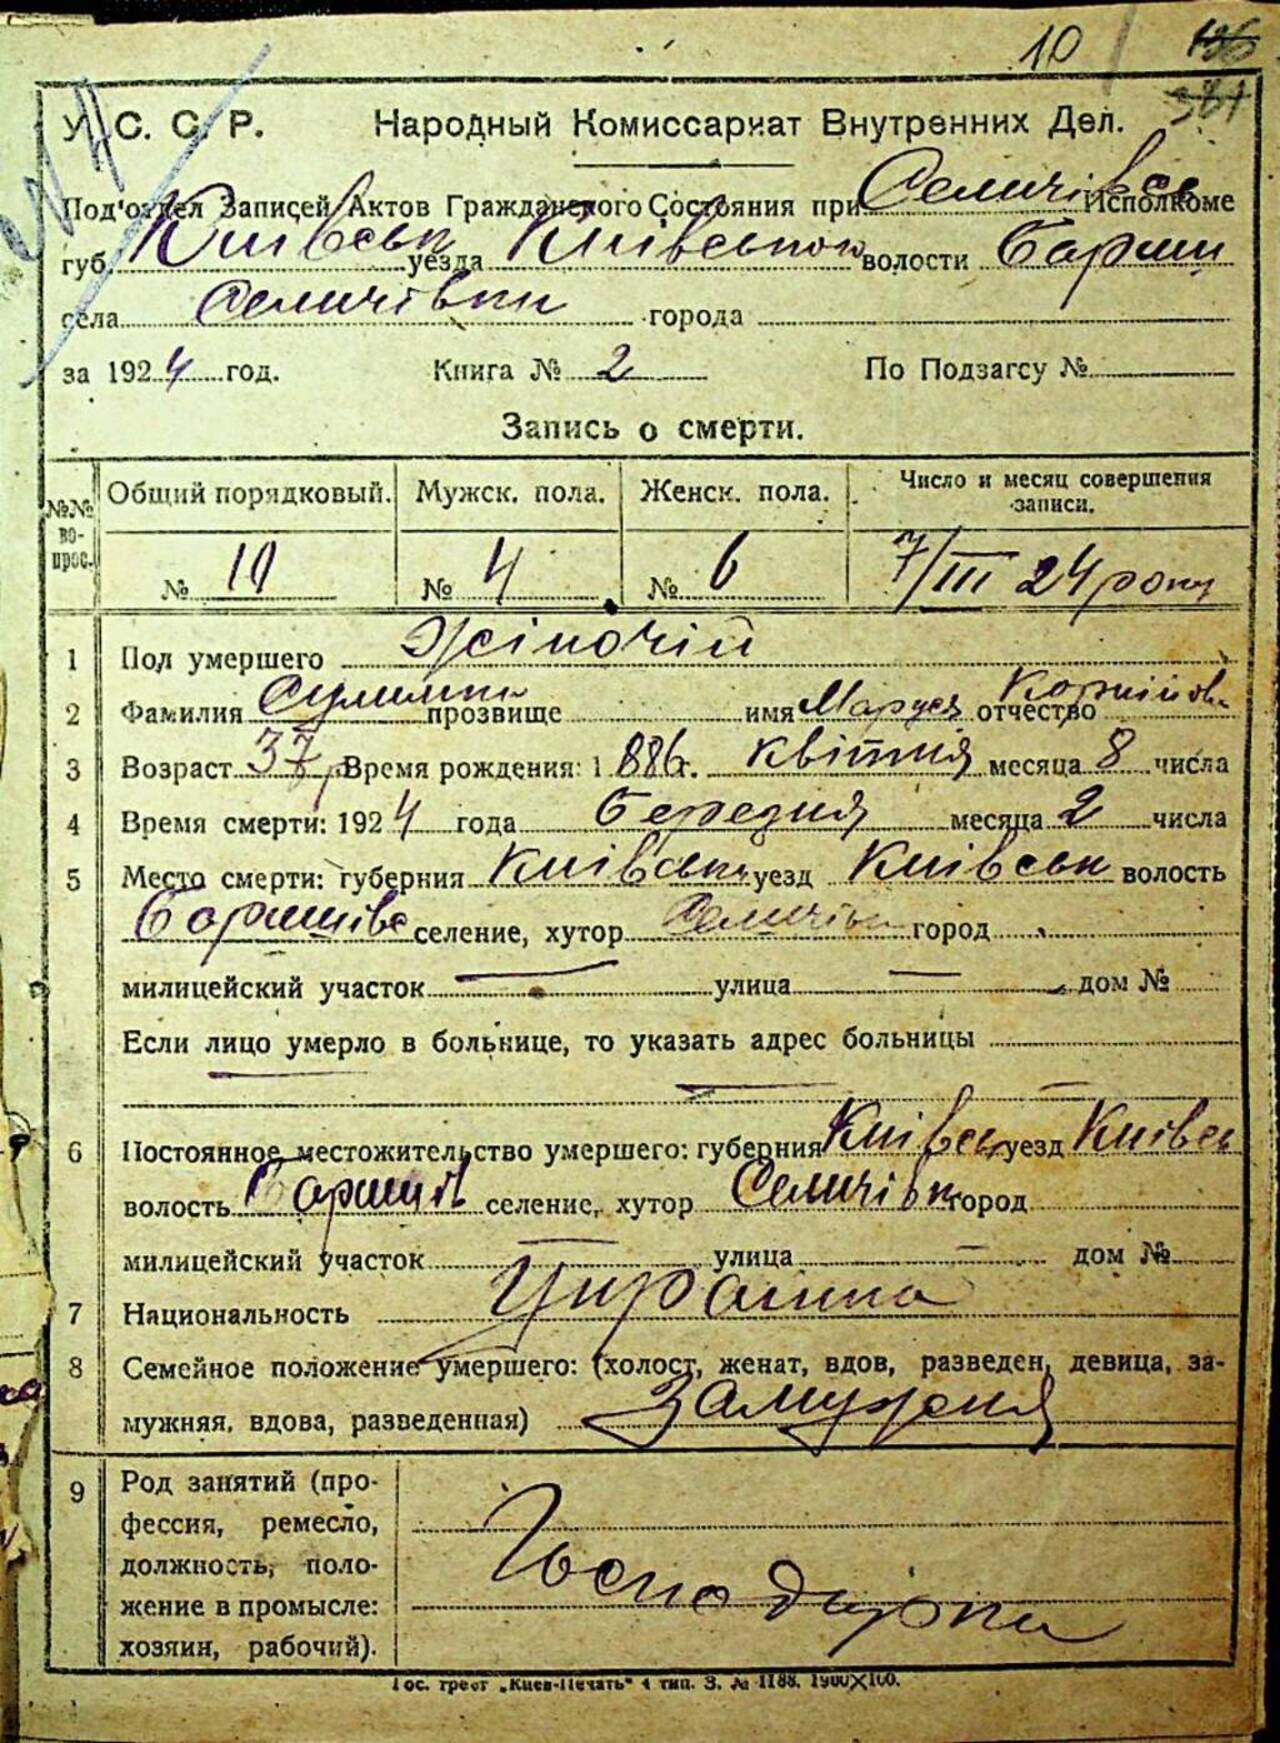 10
У. С. С. Р. Народный Комиссариат Внутренних Дел.
Под'отдел Записей Актов Гражданского Состояния при Селичівск Исполкоме
губ. Київськ уезда Київською волости Барши
села Селичівки города
за 1924 год. Книга № 2 По Подзагсу №
Запись о смерти.
№№ вопрос. Общий порядковый. Мужск. пола. Женск. пола. Число и месяц совершения записи.
№ 10 № 4 № 6 7/III 24 року
1 Пол умершего Жіночій
2 Фамилия прозвище имя Маруся отчество Корнійовн
3 Возраст 37 р Время рождения: 1886 г. квітня месяца 8 числа
4 Время смерти: 1924 года березня месяца 2 числа
5 Место смерти: губерния Київськ уезд Київськ волость
селение, хутор Селичівк город
милицейский участок — улица — дом №
Если лицо умерло в больнице, то указать адрес больницы
6 Постоянное местожительство умершего: губерния Київськ уезд Київськ
волость селение, хутор Селичівк город
милицейский участок — улица — дом №
7 Национальность Українка
8 Семейное положение умершего: (холост, женат, вдов, разведен, девица, за-
мужняя, вдова, разведенная) Замужня
9 Род занятий (про-
фессия, ремесло,
должность, поло-
жение в промысле:
хозяин, рабочий).
Господарка
Гос. трест „Киев-Печать“ 4 тип. З. № 1188. 1900×100.